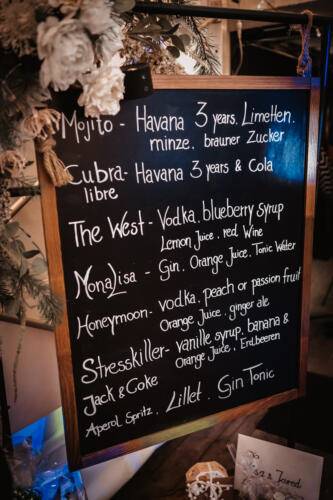 Mojito - Havana 3 years, Limetten,
minze, brauner Zucker
Cubra - Havana 3 years & Cola
libre
The West - Vodka, blueberry syrup
Lemon Juice, red Wine
MonaLisa - Gin, Orange Juice, Tonic Water
Honeymoon - vodka, peach or passion fruit
Orange Juice, ginger ale
Stresskiller - vanille syrup, banana &
Orange Juice, Erdbeeren
Jack & Coke
Aperol Spritz, Lillet, Gin Tonic